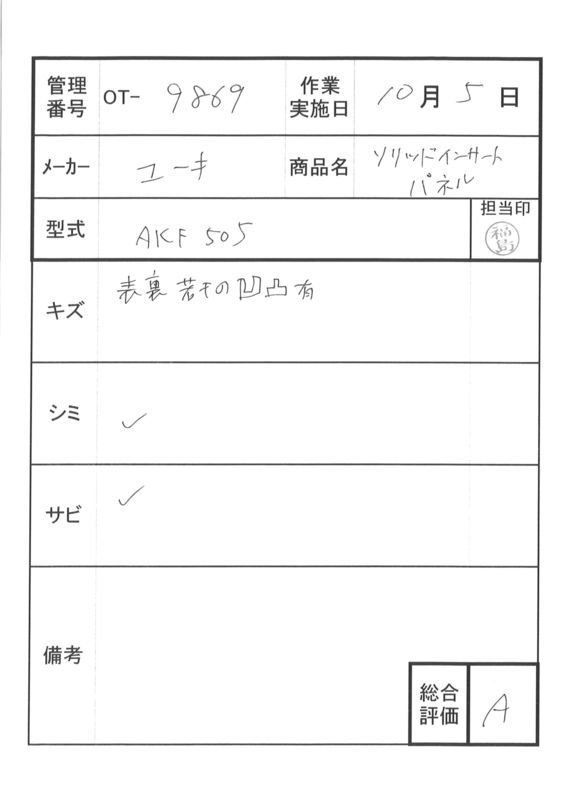 管理番号 OT- 9869 作業実施日 10月 5日
メーカー ユーキ 商品名 ソリッドインサートパネル
型式 AKF 505 担当印 福島
キズ 表裏 若干の凹凸有
シミ ✓
サビ ✓
備考
総合評価 A